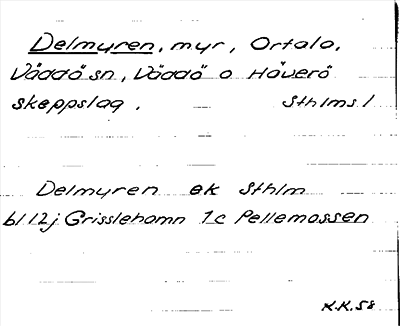 Delmyren, myr, Ortala,
Väddö sn, Väddö o Häverö
skeppslag. Sthlms l
Delmyren ek Sthlm
bl 12j Grisslehamn 1c Pellemossen
K.K.58